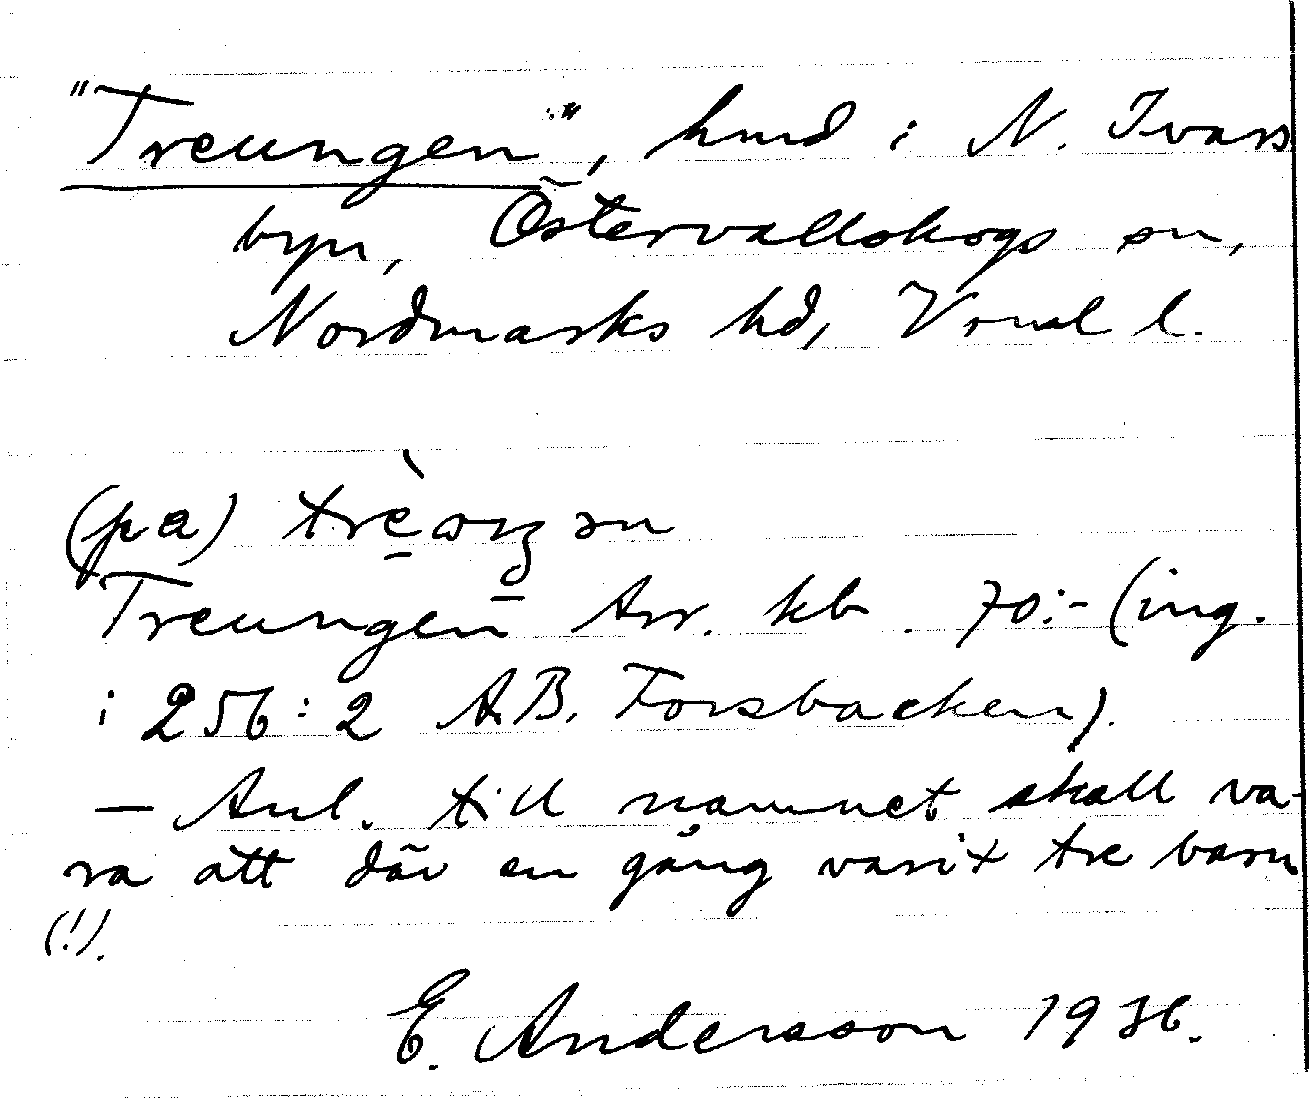 "Treungen", hmd i N. Ivars
byn, Östervallskogs sn,
Nordmarks hd, Vrml l.
(pa)
Treungen Arr. kb. 70:- (ing.
i 256:2 A.B. Forsbacken).
— Anl. till namnet skall va-
ra att där en gång varit tre barn
(!).
E. Andersson 1936.